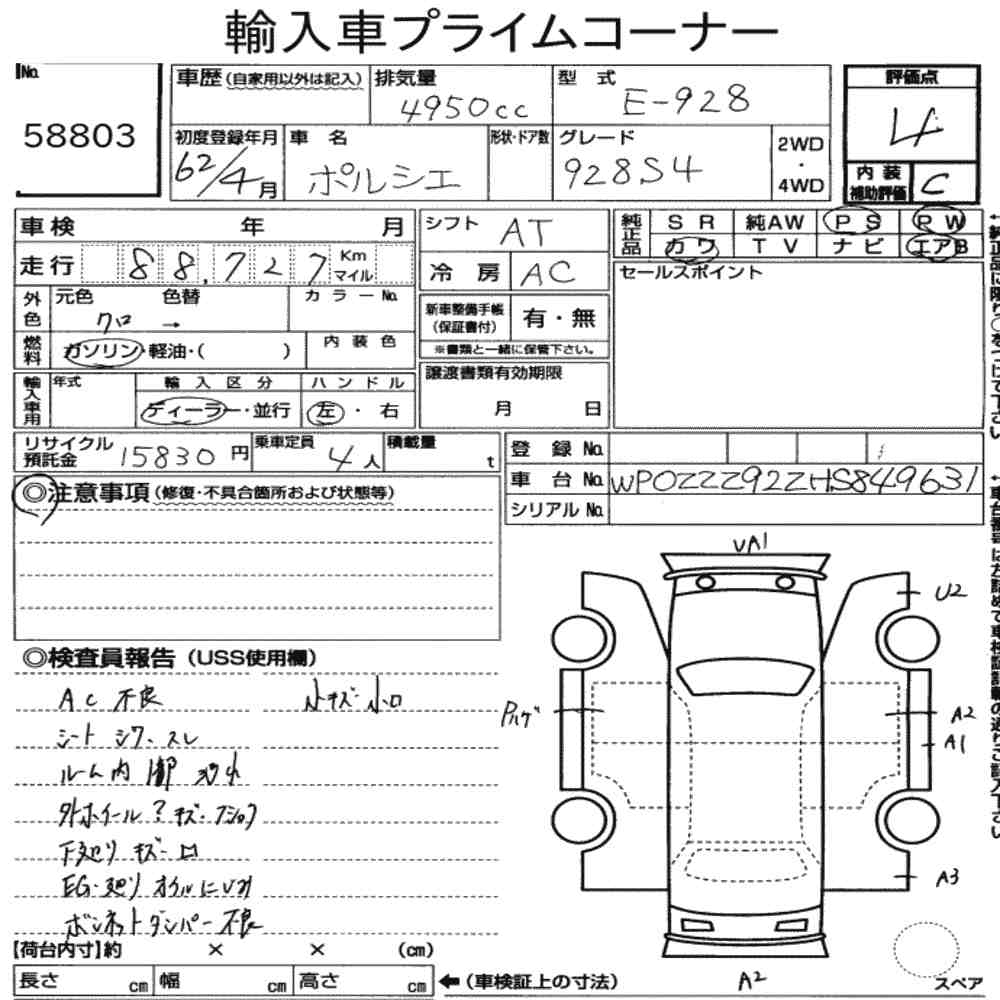 輸入車プライムコーナー
No.
58803
車歴(自家用以外は記入)
排気量
4950cc
型 式
E-928
評価点
4
初度登録年月
62/4月
車 名
ポルシェ
形状・ドア数
グレード
928S4
2WD
・
4WD
内 装
補助評価
C
車検 年 月
シフト AT
純正品
SR 純AW PS PW
カワ TV ナビ エアB
走行 88,727 Km マイル
冷 房 AC
セールスポイント
外色
元色 色替
クロ →
カラーNo.
新車整備手帳
(保証書付)
有・無
※書類と一緒に保管下さい。
燃料
ガソリン・軽油・( )
内装色
譲渡書類有効期限
月 日
輸入車用
年式
輸入区分
ディーラー・並行
ハンドル
左・右
リサイクル
預託金
15830円
乗車定員
4人
積載量
t
登 録 No.
車 台 No. WP0ZZZ92ZHS849631
シリアル No.
◎注意事項(修復・不具合箇所および状態等)
◎検査員報告(USS使用欄)
AC 不良
小キズ 小凹
シート シワ、スレ
ルーム内
外ホイール? キズ・
下廻り キズ・凹
EG・廻り オイルにじみ
ボンネットダンパー不良
VA1
U2
A2
A1
A3
A2
スペア
【荷台内寸】約 × × (cm)
長さ cm 幅 cm 高さ cm
←(車検証上の寸法)